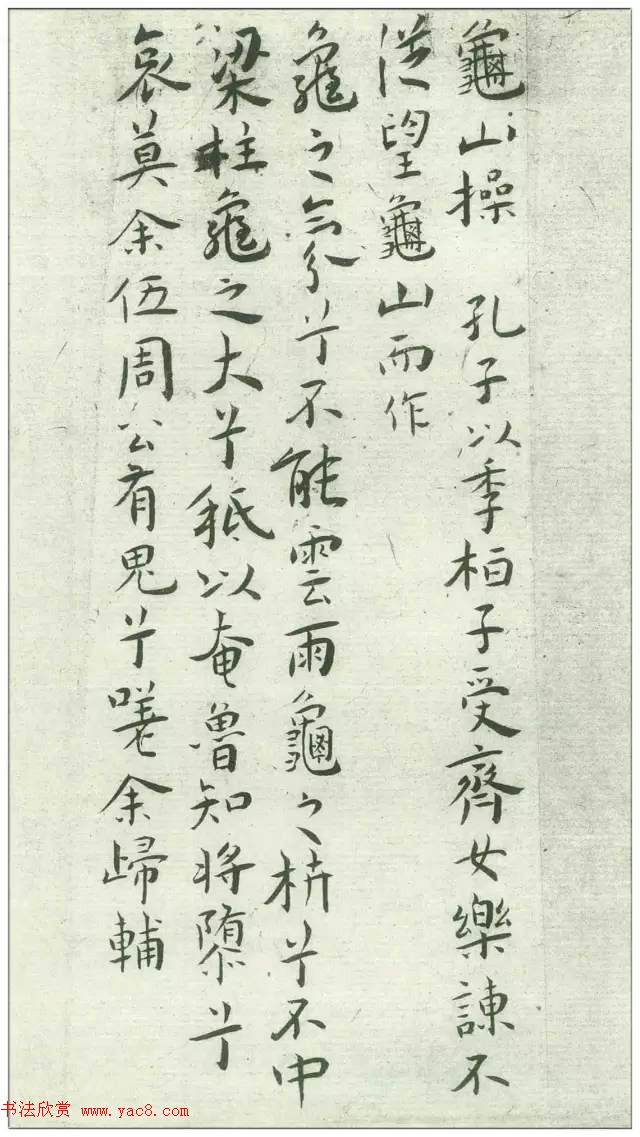 龜山操 孔子以季柏子受齊女樂諫不
從望龜山而作
龜之氛兮不能雲雨龜之枿兮不中
梁柱龜之大兮秪以奄魯知將隳兮
哀莫余伍周公有鬼兮嗟余歸輔
书法欣赏 www.yac8.com